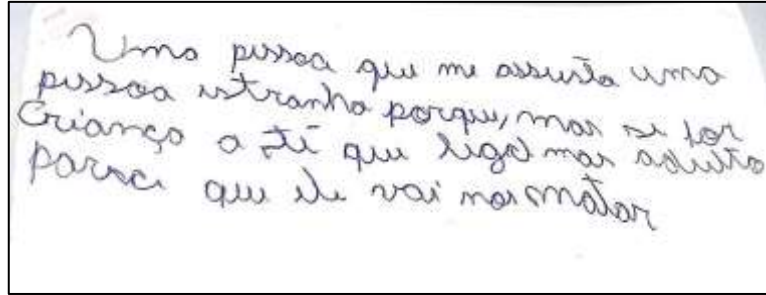 Uma pessoa que me assusta uma
pessoa estranha porque, mas se for
Criança a té que legal mas adulto
parece que ele vai nos matar